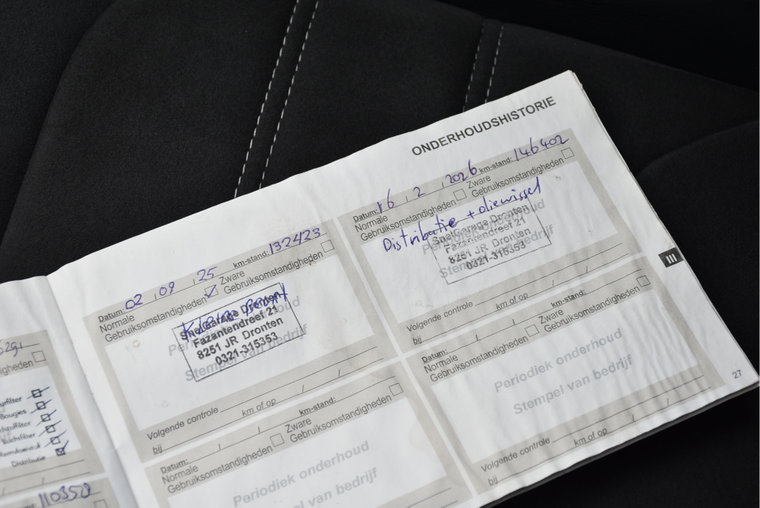 ONDERHOUDSHISTORIE
Distributie
110350
Datum: 02 09 25 km-stand: 132423
Normale
Gebruiksomstandigheden
Zware
Gebruiksomstandigheden
Kleine beurt
SnelGarage Dronten
Fazantendreef 21
8251 JR Dronten
0321-315353
Periodiek onderhoud
Stempel van bedrijf
Volgende controle km of op / /
bij
Datum: / / km-stand:
Normale
Gebruiksomstandigheden
Zware
Gebruiksomstandigheden
Periodiek onderhoud
Stempel van bedrijf
Datum: 16 2 2026 km-stand: 146402
Normale
Gebruiksomstandigheden
Zware
Gebruiksomstandigheden
Distributie + oliewissel
SnelGarage Dronten
Fazantendreef 21
8251 JR Dronten
0321-315353
Periodiek onderhoud
Stempel van bedrijf
Volgende controle km of op / /
bij
Datum: / / km-stand:
Normale
Gebruiksomstandigheden
Zware
Gebruiksomstandigheden
Periodiek onderhoud
Stempel van bedrijf
Volgende controle km of op / /
bij
III
27